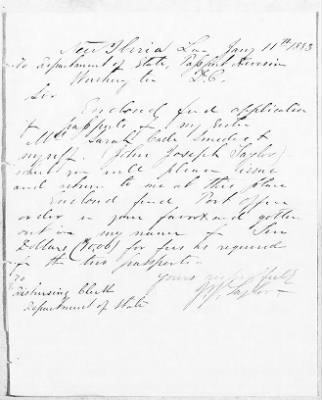 New Iberia La Jany 11th 1883
To Department of State, Passport Division
Washington D.C.
Sir
Enclosed find application
for passports of my Sister
Mrs Sarah &
myself. (John Joseph Taylor)
which you will please issue
and return to me at this place
Enclosed find Post Office
order in your favor and gotten
out in my name of Ten
Dollars ($10.00) for fees as required
for the two passports
Yours respectfully
To J.J. Taylor
Disbursing Clerk
Department of State